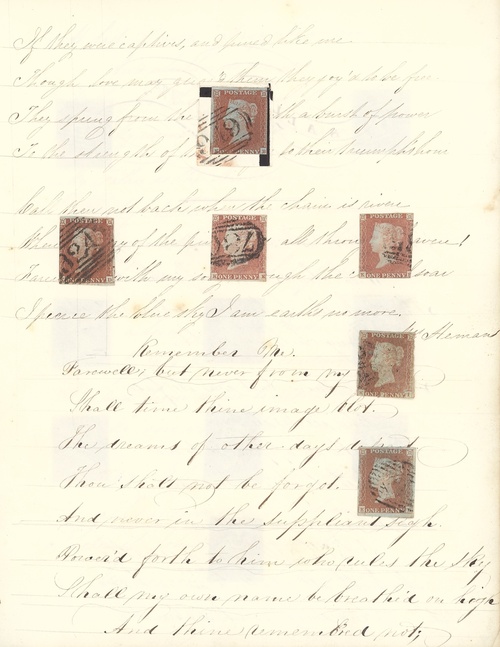 If they were captives, and pined like me
Though love may guard them they joy'd to be free
They spring from the with a burst of power
To the strength of to their triumph home
POSTAGE
ONE PENNY
Call them not back when the chain is riven
When of the all thro'
Farewell with my through the soar
I pierce the blue sky I am earths no more.
POSTAGE
ONE PENNY
POSTAGE
ONE PENNY
POSTAGE
ONE PENNY
Hemans
Remember Me.
Farewell, but never from my
Shall time thine image blot.
The dreams of other days
Thou shalt not be forgot.
And never in the suppliant sigh.
Pour'd forth to him who rules the sky
Shall my own name be breath'd on high
And thine remembered not;
POSTAGE
ONE PENNY
POSTAGE
ONE PENNY